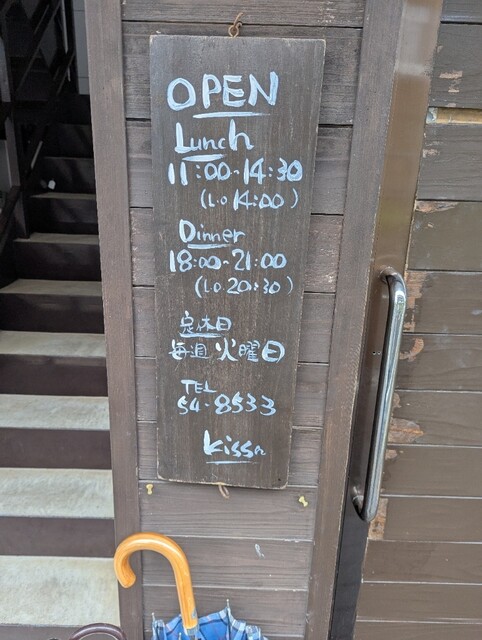 OPEN
Lunch
11:00~14:30
(L.O 14:00)
Dinner
18:00~21:00
(L.O 20:30)
定休日
毎週 火曜日
TEL
54-8533
kissa